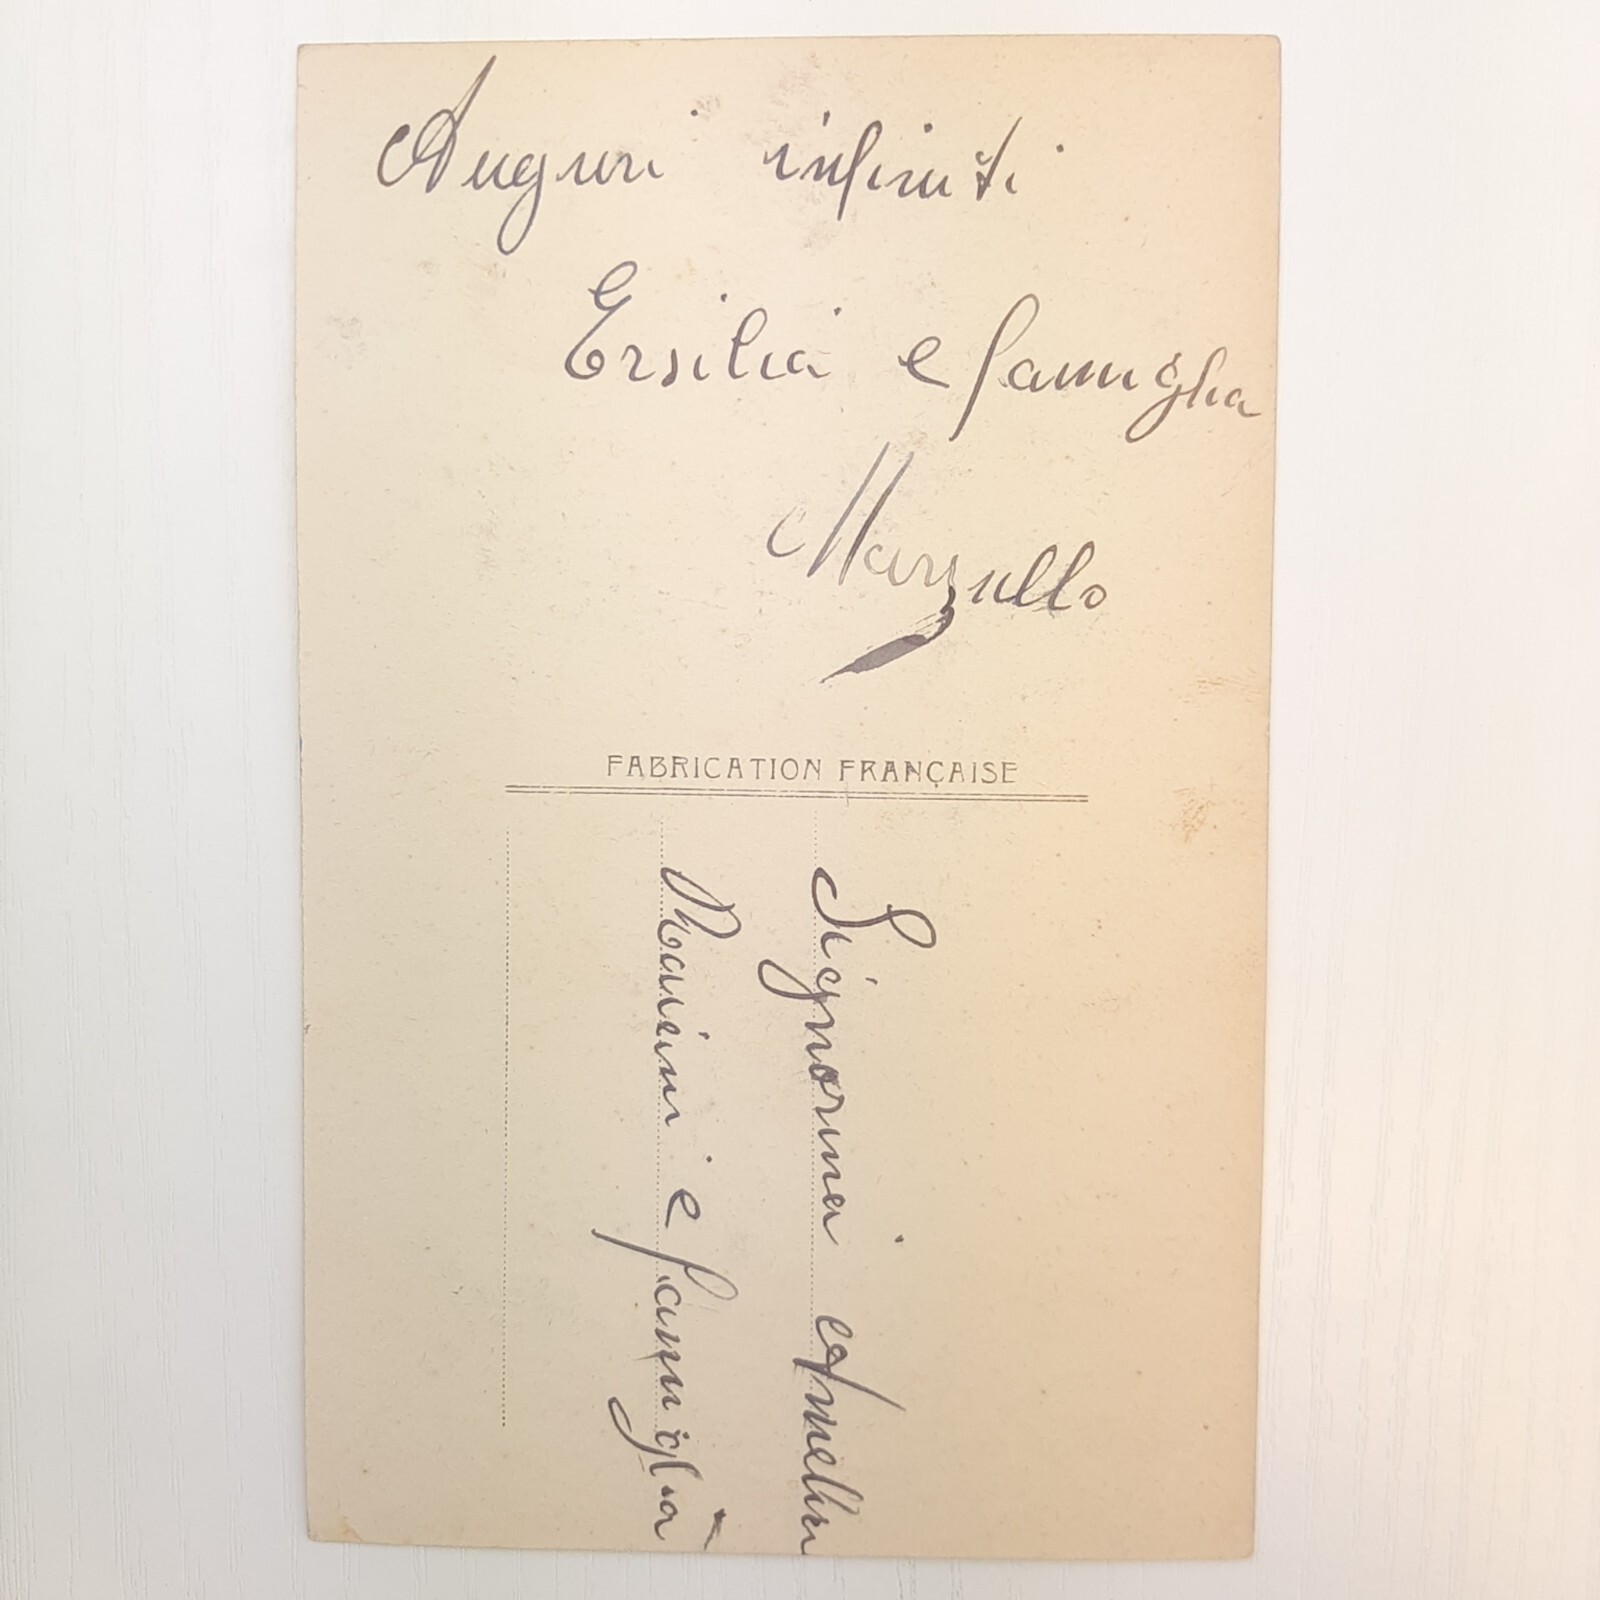 Auguri infiniti
Ersilia e famiglia
Marzullo
FABRICATION FRANÇAISE
Signorina Amelia
Marini e famiglia